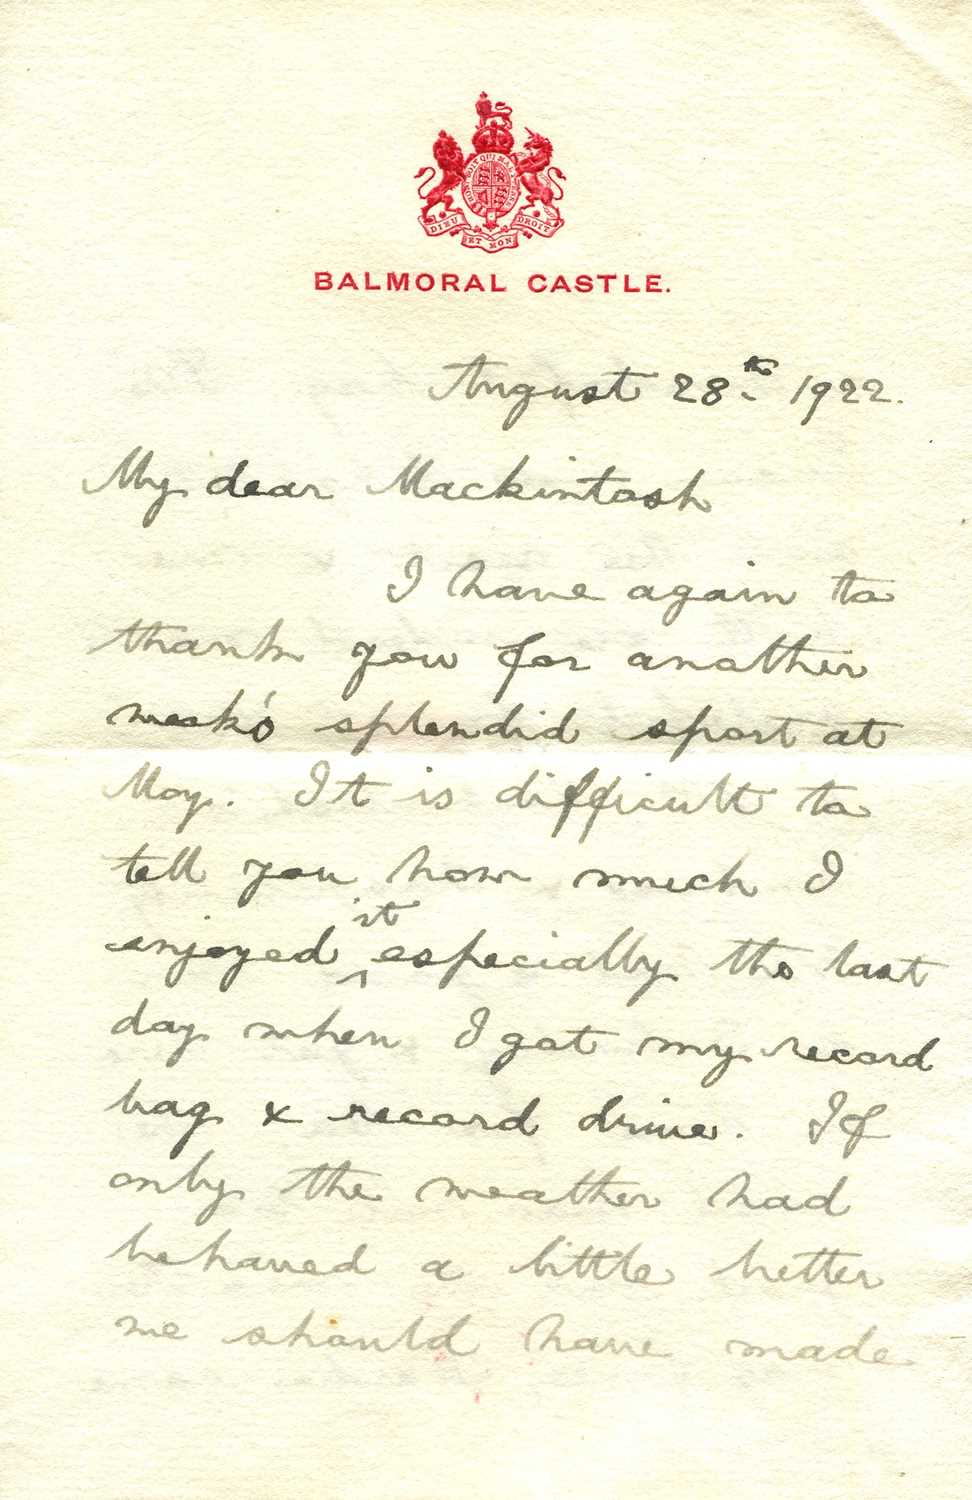 HONI SOIT QUI MAL Y PENSE
DIEU ET MON DROIT
BALMORAL CASTLE.
August 28th. 1922.
My dear Mackintosh
I have again to
thank you for another
week's splendid sport at
Moy. It is difficult to
tell you how much I
enjoyed it especially the last
day when I got my record
bag & record drive. If
only the weather had
behaved a little better
we should have made